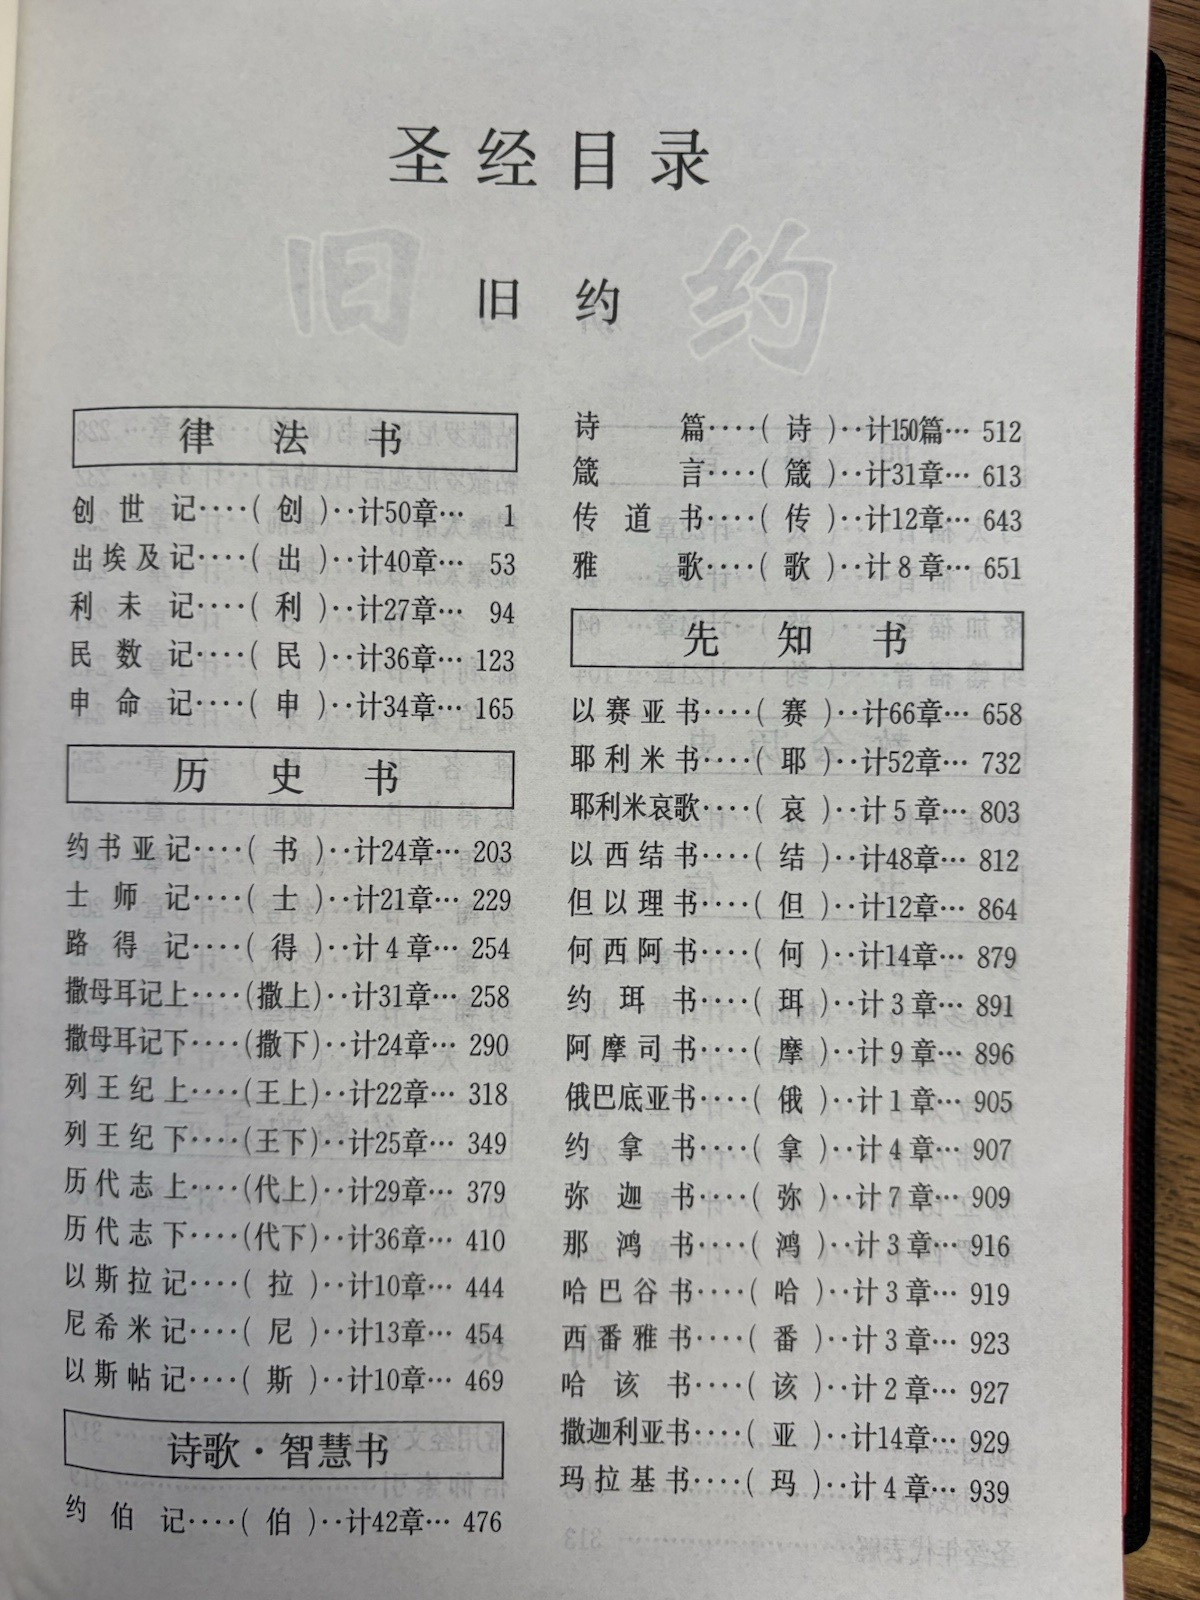 圣经目录
旧约
旧 约
律 法 书
创世记····(创)··计50章··· 1
出埃及记····(出)··计40章··· 53
利未记····(利)··计27章··· 94
民数记····(民)··计36章··· 123
申命记····(申)··计34章··· 165
历 史 书
约书亚记····(书)··计24章··· 203
士师记····(士)··计21章··· 229
路得记····(得)··计4章··· 254
撒母耳记上····(撒上)··计31章··· 258
撒母耳记下····(撒下)··计24章··· 290
列王纪上····(王上)··计22章··· 318
列王纪下····(王下)··计25章··· 349
历代志上····(代上)··计29章··· 379
历代志下····(代下)··计36章··· 410
以斯拉记····(拉)··计10章··· 444
尼希米记····(尼)··计13章··· 454
以斯帖记····(斯)··计10章··· 469
诗歌·智慧书
约伯记····(伯)··计42章··· 476
诗篇····(诗)··计150篇··· 512
箴言····(箴)··计31章··· 613
传道书····(传)··计12章··· 643
雅歌····(歌)··计8章··· 651
先 知 书
以赛亚书····(赛)··计66章··· 658
耶利米书····(耶)··计52章··· 732
耶利米哀歌····(哀)··计5章··· 803
以西结书····(结)··计48章··· 812
但以理书····(但)··计12章··· 864
何西阿书····(何)··计14章··· 879
约珥书····(珥)··计3章··· 891
阿摩司书····(摩)··计9章··· 896
俄巴底亚书····(俄)··计1章··· 905
约拿书····(拿)··计4章··· 907
弥迦书····(弥)··计7章··· 909
那鸿书····(鸿)··计3章··· 916
哈巴谷书····(哈)··计3章··· 919
西番雅书····(番)··计3章··· 923
哈该书····(该)··计2章··· 927
撒迦利亚书····(亚)··计14章··· 929
玛拉基书····(玛)··计4章··· 939